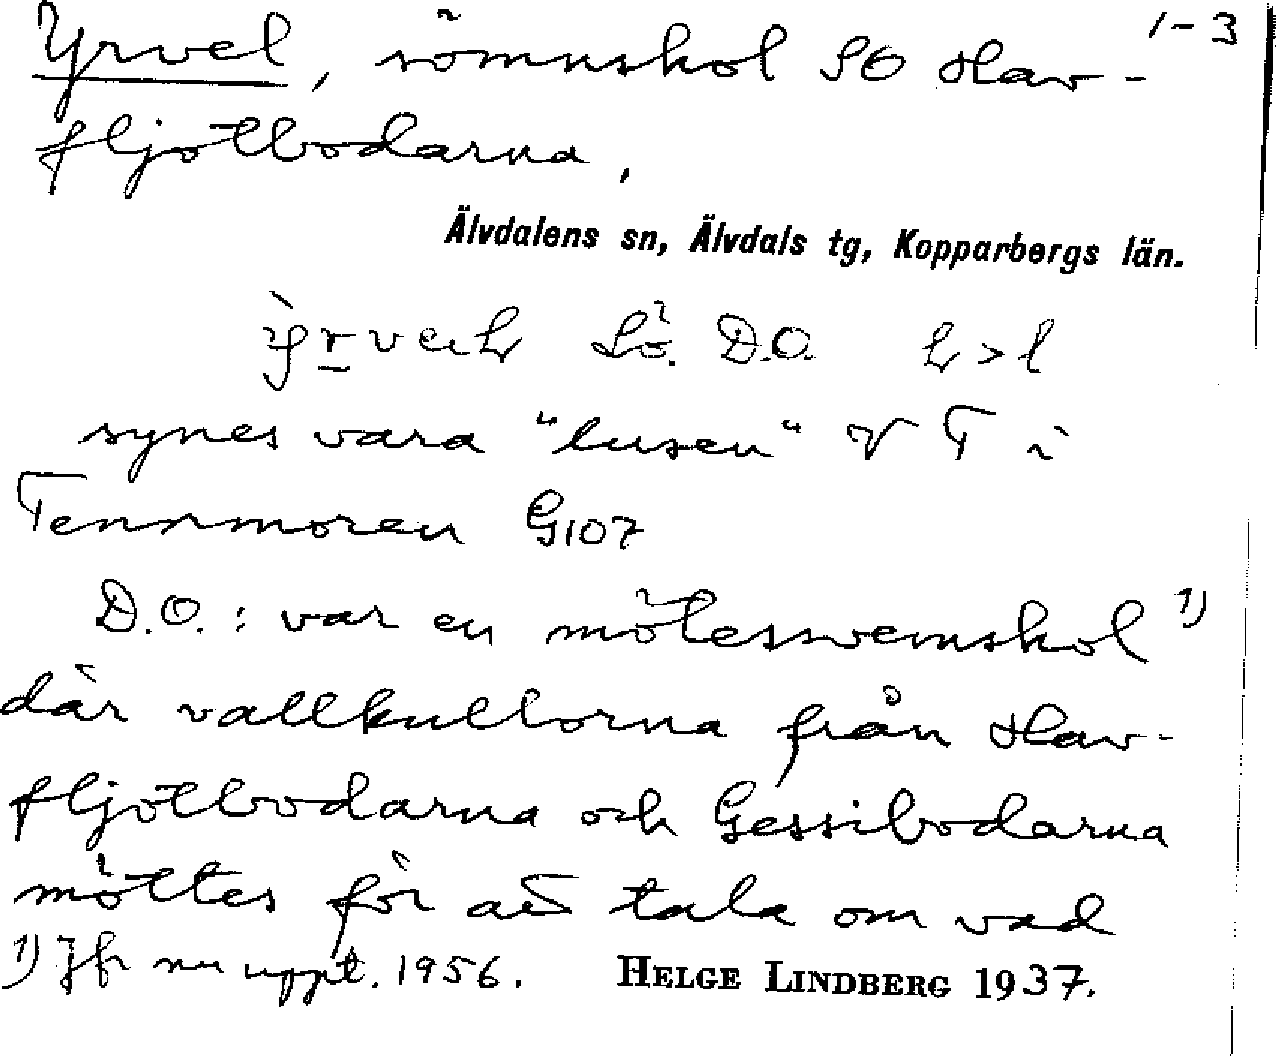 1-3
Yrvel, sömnskol SO Hav-
fljotbodarna,
Älvdalens sn, Älvdals tg, Kopparbergs län.
D.O. > l
synes vara "lusen" V T i
Tennmoren G107
D.O. : var en mötessvemskol 1)
där vallkullorna från Hav-
fljötbodarna och Gessibodarna
möttes för att tala om vad
1) Jfr nu uppt. 1956. HELGE LINDBERG 1937.